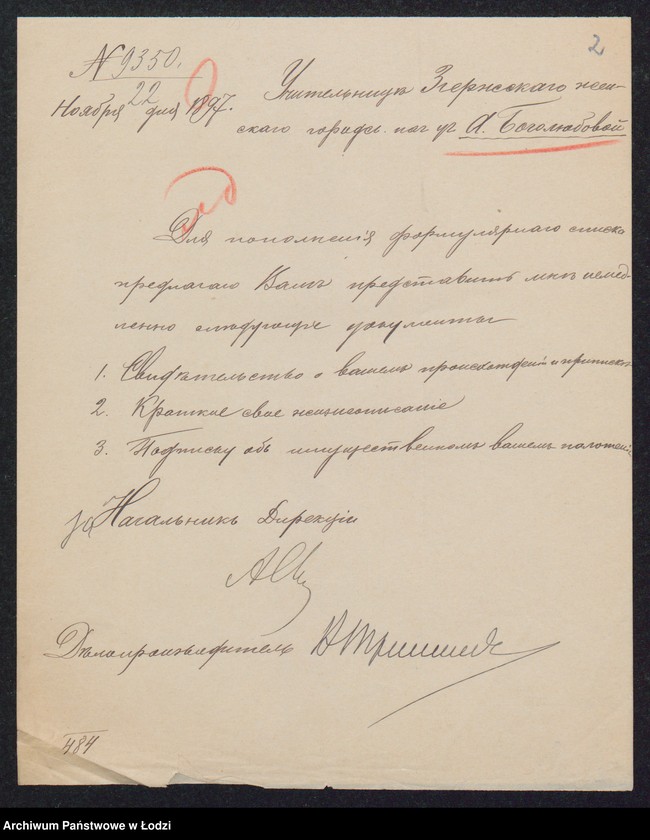 2
№ 9350.
Ноября 22 дня 1897.
Учительницѣ Згержскаго жен-
скаго городск. нач. уч. А. Боголюбовой
Для пополненія формулярнаго списка
предлагаю Вамъ представить мнѣ немед-
ленно слѣдующіе документы
1. Свидѣтельство о вашемъ происхожденіи и припискѣ
2. Краткое свое жизнеописаніе
3. Подписку объ имущественномъ вашемъ положеніи
за Начальникъ Дирекціи
Дѣлопроизводитель
484
Archiwum Państwowe w Łodzi